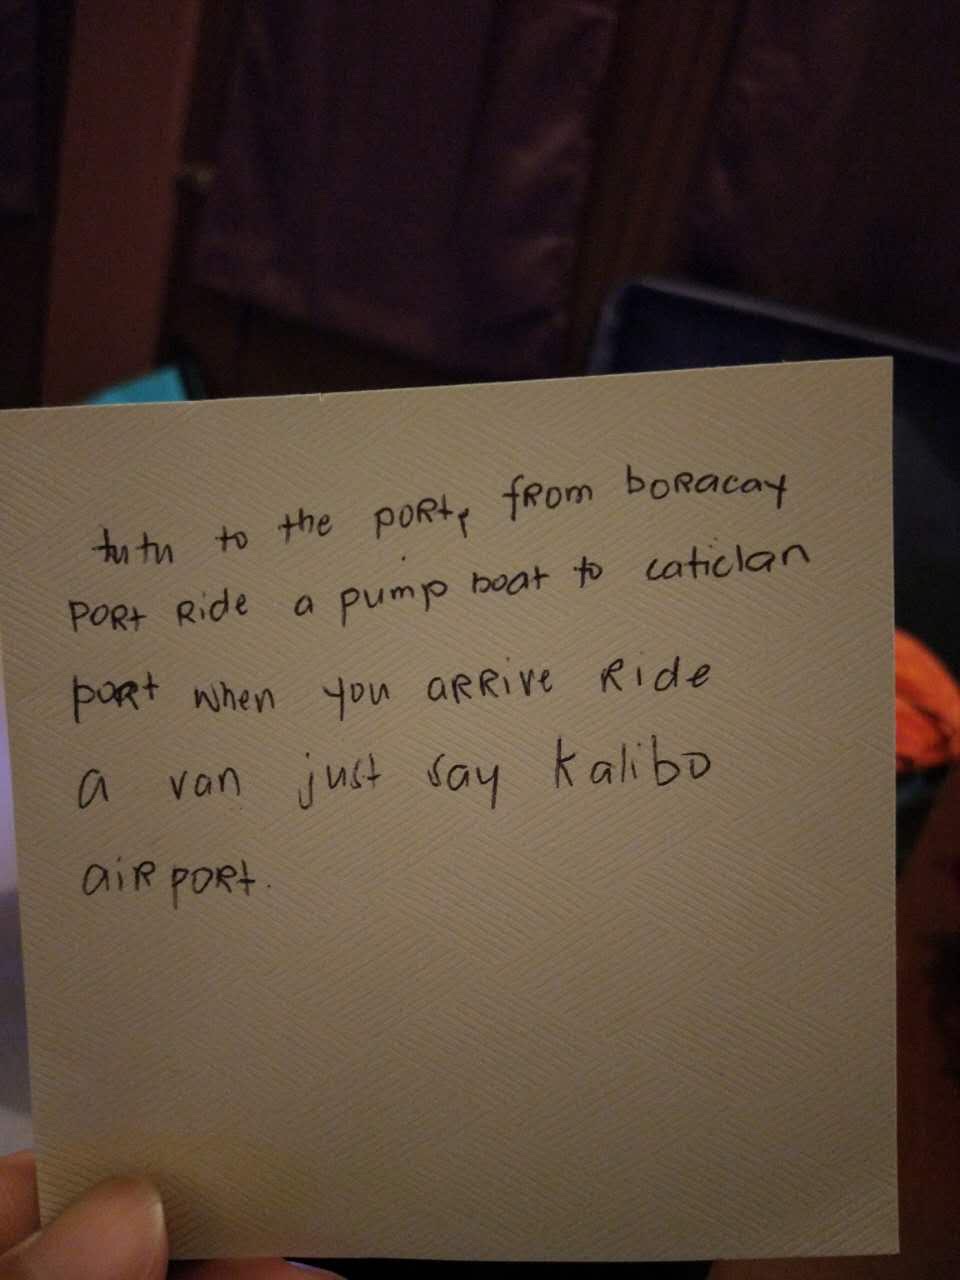 tutu to the PORt, fRom boRacay
PORt Ride a pump boat to caticlan
port when you aRRive Ride
a van just say kalibo
aiRPORt.